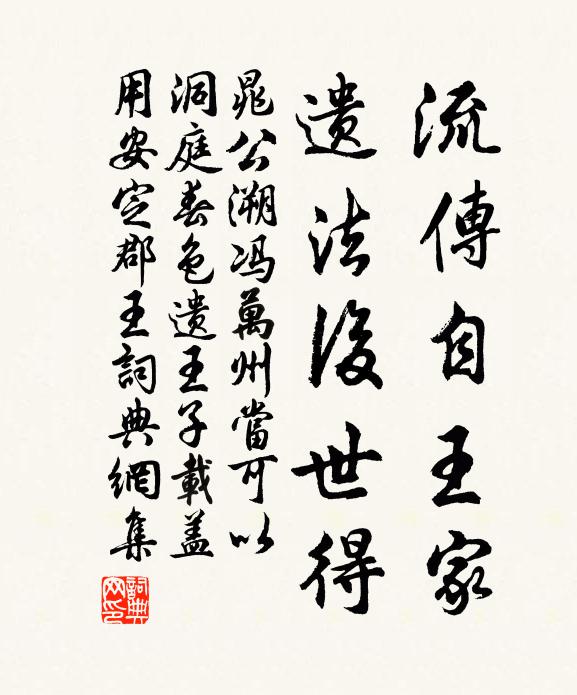 流傳自王家
遺法後世得
晁公溯馮萬州當可以
洞庭春色遺王子載蓋
用安定郡王詞典網集
詞典網印